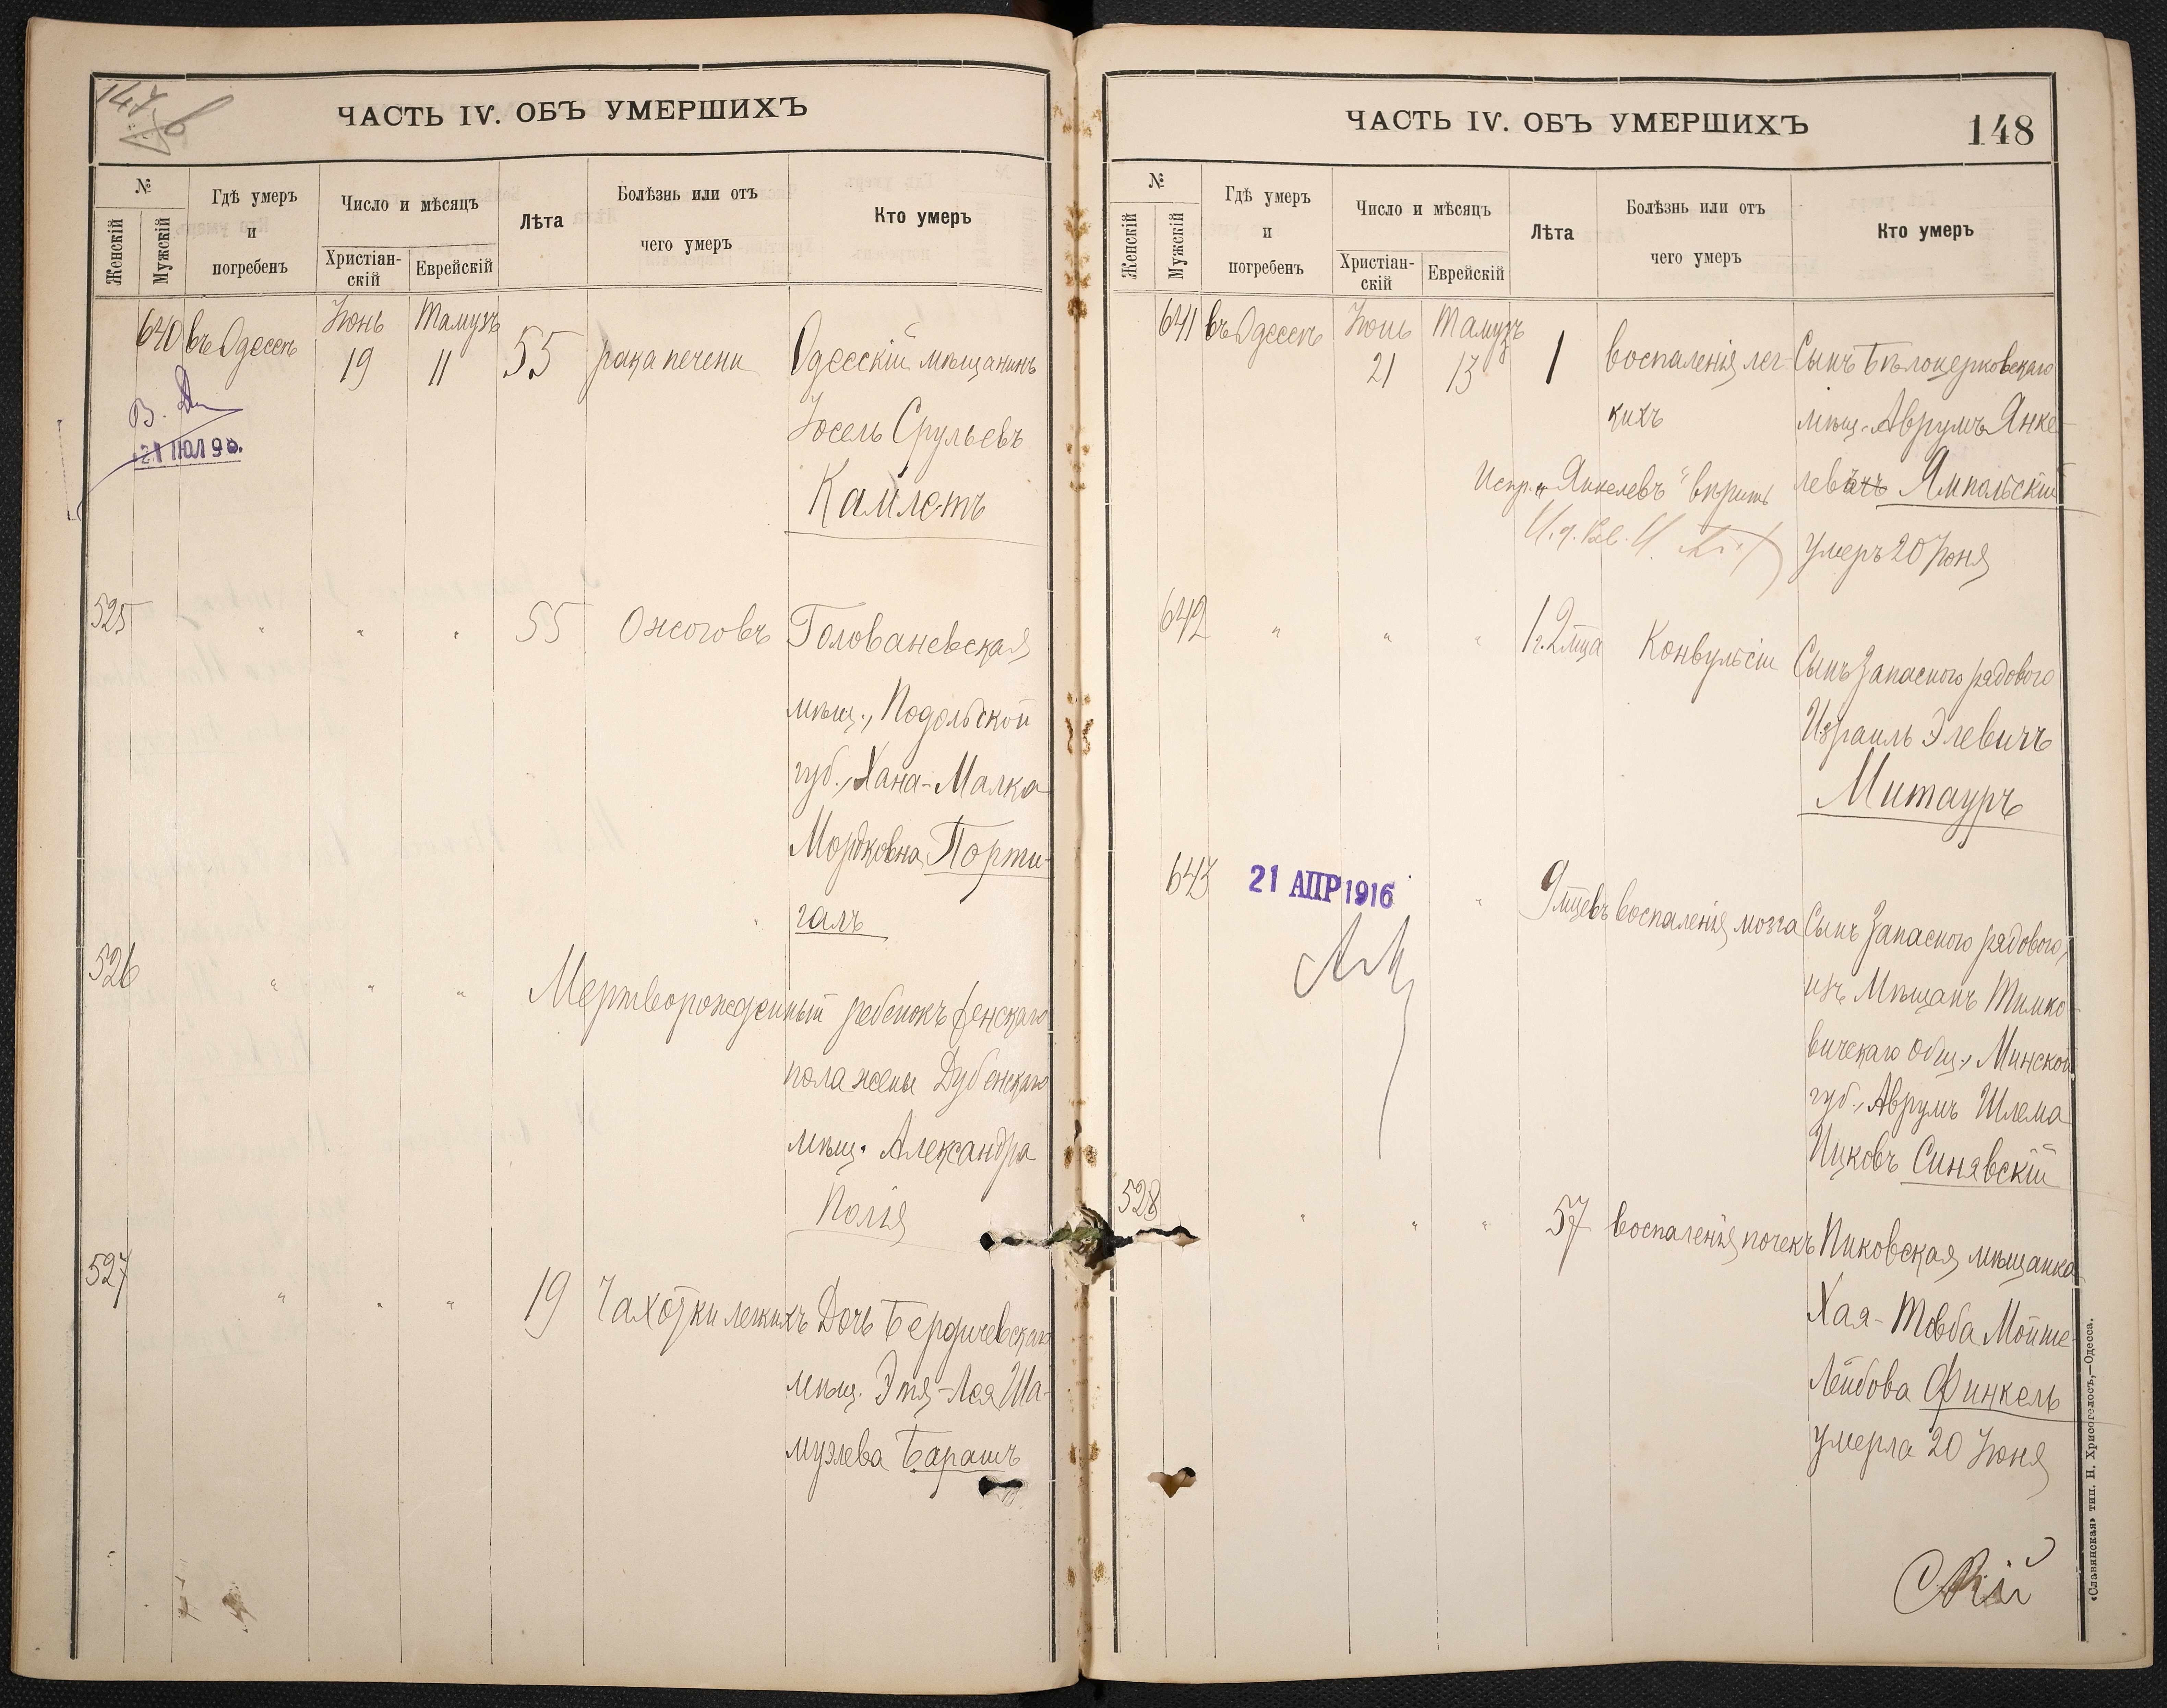 147
ЧАСТЬ IV. ОБЪ УМЕРШИХЪ
№
Женскій
Мужскій
Гдѣ умеръ
и
погребенъ
Число и мѣсяцъ
Христіан-
скій
Еврейскій
Лѣта
Болѣзнь или отъ
чего умеръ
Кто умеръ
640 въ Одессѣ Іюнь Тамузъ
19 11 55 рака печени Одесскій мѣщанинъ
Іосель Срульевъ
Камлетъ
21 ІЮЛ 9
525 " " " 55 Ожоговъ Голованевская
мѣщ., Подольской
губ., Хана-Малка
Мордковна Порти-
галъ
526 " " " Мертворожденный ребенокъ женскаго
пола жены Дубенскаго
мѣщ. Александра
Полія
527 " " " 19 Чахотки легкихъ Дочь Бердичевскаго
мѣщ. Этя-Лея Ша-
муэлева Барашъ
ЧАСТЬ IV. ОБЪ УМЕРШИХЪ
148
№
Женскій
Мужскій
Гдѣ умеръ
и
погребенъ
Число и мѣсяцъ
Христіан-
скій
Еврейскій
Лѣта
Болѣзнь или отъ
чего умеръ
Кто умеръ
641 въ Одессѣ Іюнь Тамузъ
21 13 1 воспаленія лег- Сынъ Бѣлоцерковскаго
кихъ мѣщ. Аврумъ Янке-
левъ Ямпольскій
Испр. "Янкелевъ" вѣрить
умеръ 20 Іюня
642 " " " 1 г. 2 мѣца Конвульсіи Сынъ Запасного рядового
Израиль Элевичъ
Митауръ
643 21 АПР 1916 " 9 мцевъ воспаленія мозга Сынъ Запасного рядового,
изъ Мѣщанъ Тимко-
вичскаго Общ., Минской
губ., Аврумъ Шлема
Ицковъ Синявскій
528 " " " 57 воспаленія почекъ Пиковская мѣщанка
Хая-Товба Мойше-
Лейбова Финкель
умерла 20 Іюня
скій
«Славянская» тип. Н. Хрисогелосъ,—Одесса.